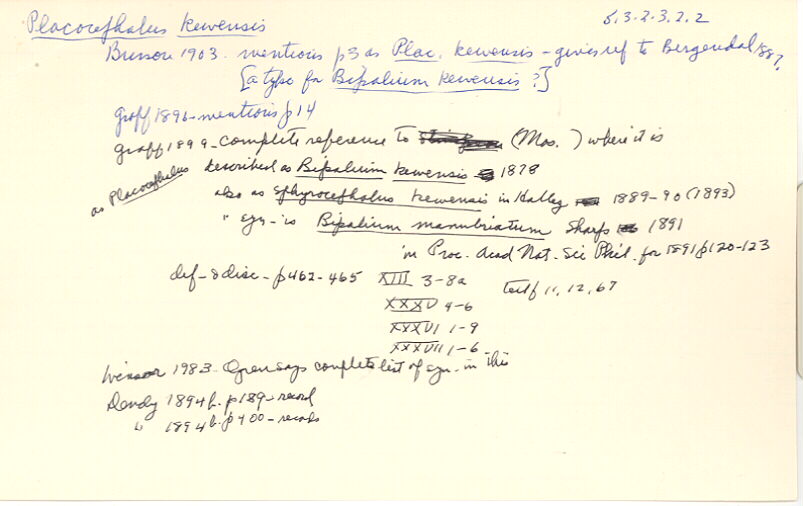 Placocephalus kewensis 5.3.2.3.2.2
Busson 1903. mentions p3 as Plac. kewensis - gives ref to Bergendal 1887,
[a typo for Bipalium kewensis?]
Graff 1896 - mentions p 14
Graff 1899 - complete reference to (Mos. ) where it is
as Placocephalus described as Bipalium kewensis 1878
also as Sphyrocephalus kewensis in Halley 1889-90 (1893)
" syn - is Bipalium manubriatum Sharp 1891
in Proc. Acad Nat. Sci Phil. for 1891 p120-123
def - & disc - p462-465 XIII 3-8a Textf 11, 12, 67
XXXV 4-6
XXXVI 1-9
XXXVII 1-6
Winsor 1983. Ogren says complete list of syn. in this
Dendy 1894b. p189 - record
" 1894b. p400 - records